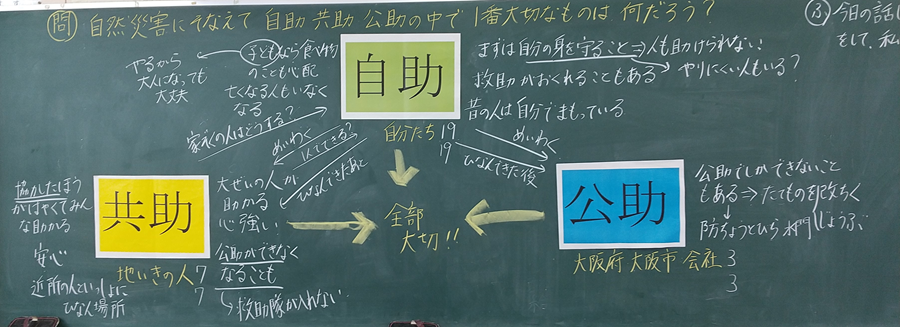 問 自然災害にそなえて 自助 共助 公助の中で 1番大切なものは 何だろう?
ふ 今日の話し
をして、私
やるから
大人になっても
大丈夫
子どもなら食べ物
のことも心配
亡くなる人もいなく
なる
家ぞくの人はどうする?
自助
自分たち 19
19
まずは自分の身を守ること⇒人も助けられない
救助がおくれることもある → やりにくい人もいる?
昔の人は自分でまもっている
めいわく
ひなんできた後
めいわく
にてきる?
ひなんできたあと
協力したほう
がはやくてみん
な助かる
安心
近所の人といっしょに
ひなん場所
共助
地いきの人 7
7
大ぜいの
人が
助かる
心強い
公助ができなく
なることも
→救助隊が入れない
全部
大切!!
公助
大阪府 大阪市 会社 3
3
公助でしかできないこと
もある⇒たてものを改ちく
防ちょうてい ひらく 水門 しょうぶ